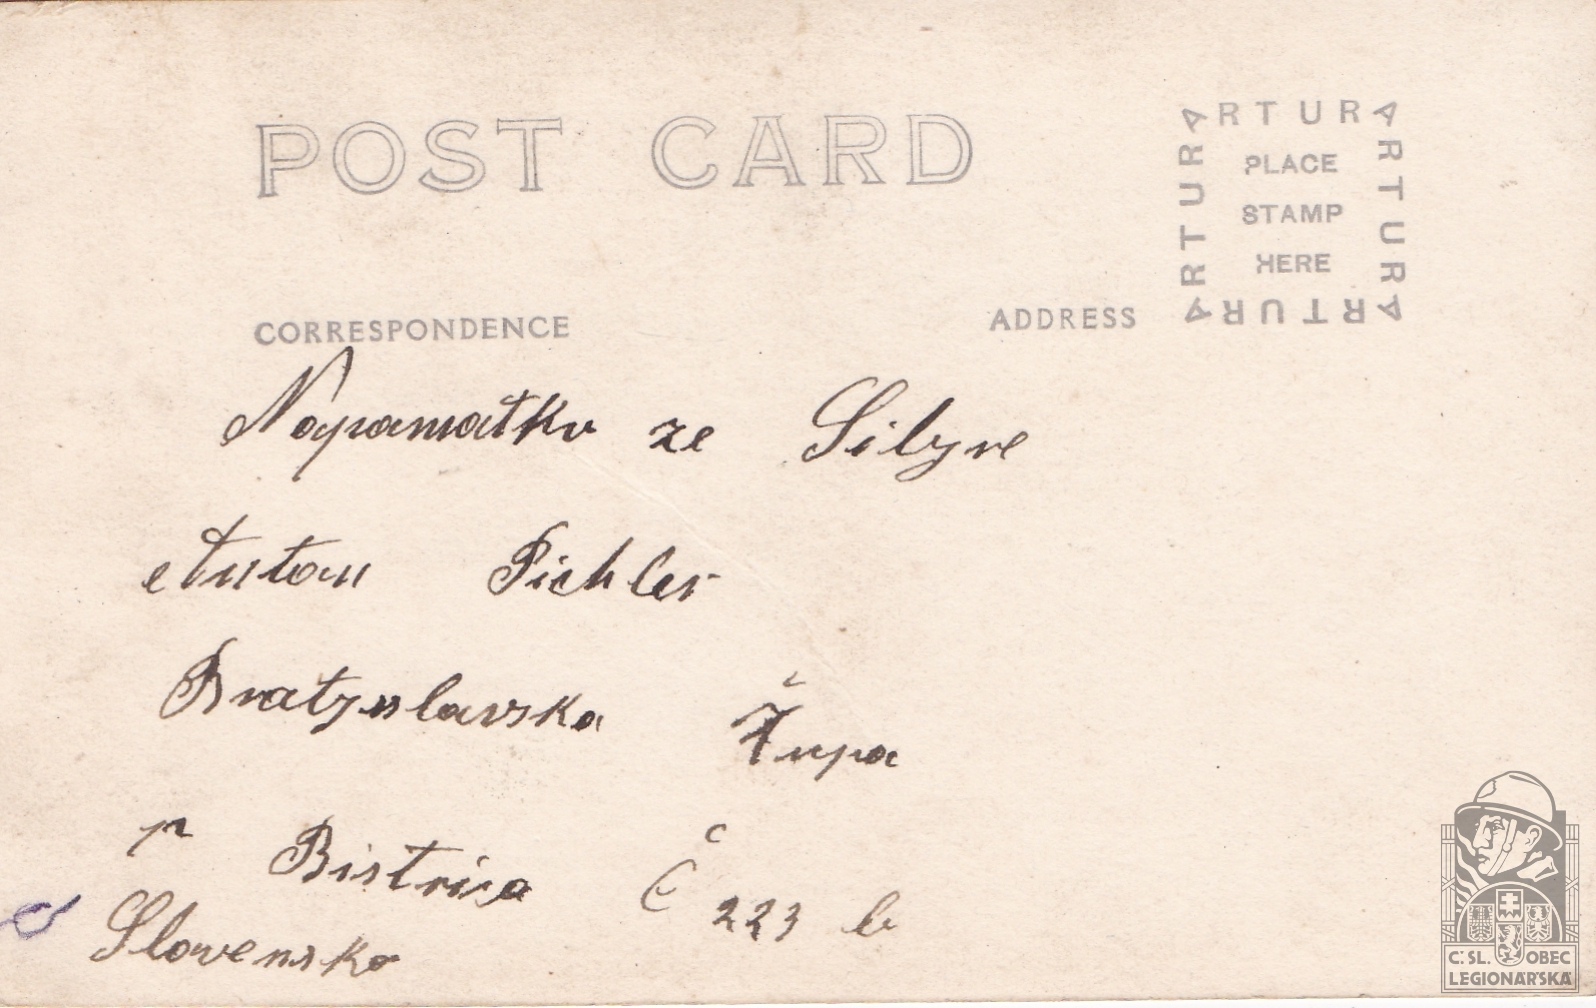 POST CARD
ARTURA RTURA RTURA RTUR
PLACE
STAMP
HERE
CORRESPONDENCE
ADDRESS
Na pamatku ze Sibyre
Anton Pichler
Bratyslavska Župa
p Bistrica Č 223 b
Slovensko
Č.SL. OBEC
LEGIONÁŘSKÁ